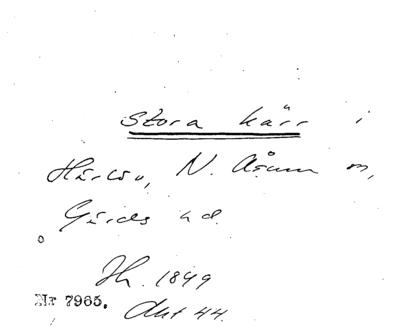 Stora kärr i
N. Åsum m,
Gärds hd.
Jh. 1849
Nr 7965. Akt 44.